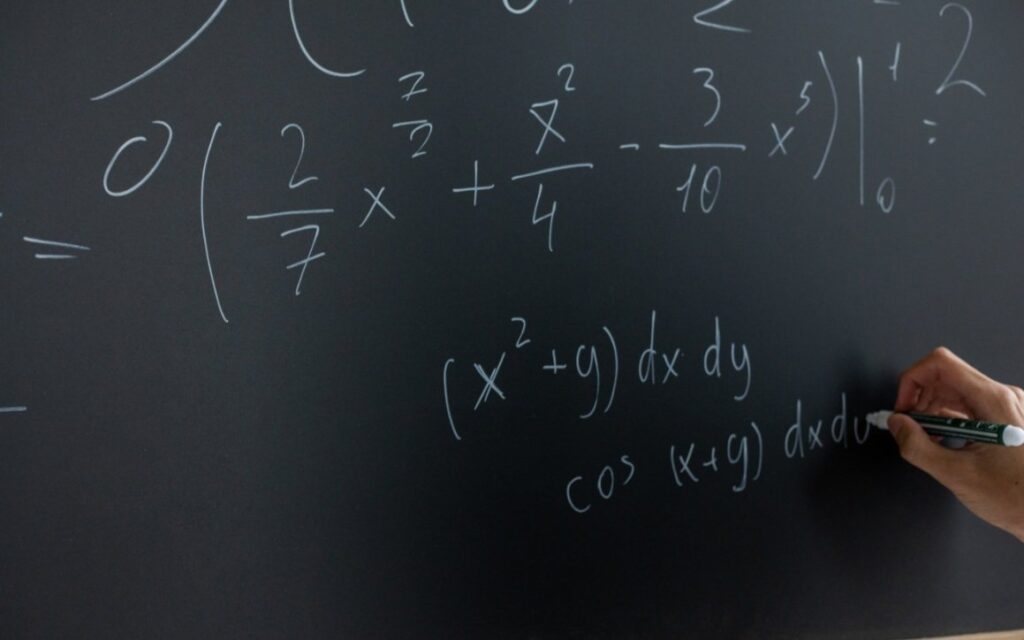 2
= 0 ( 2/7 x^(7/2) + x^2/4 - 3/10 x^5 ) |_0^1 =
(x^2 + y) dx dy
cos (x+y) dx dy